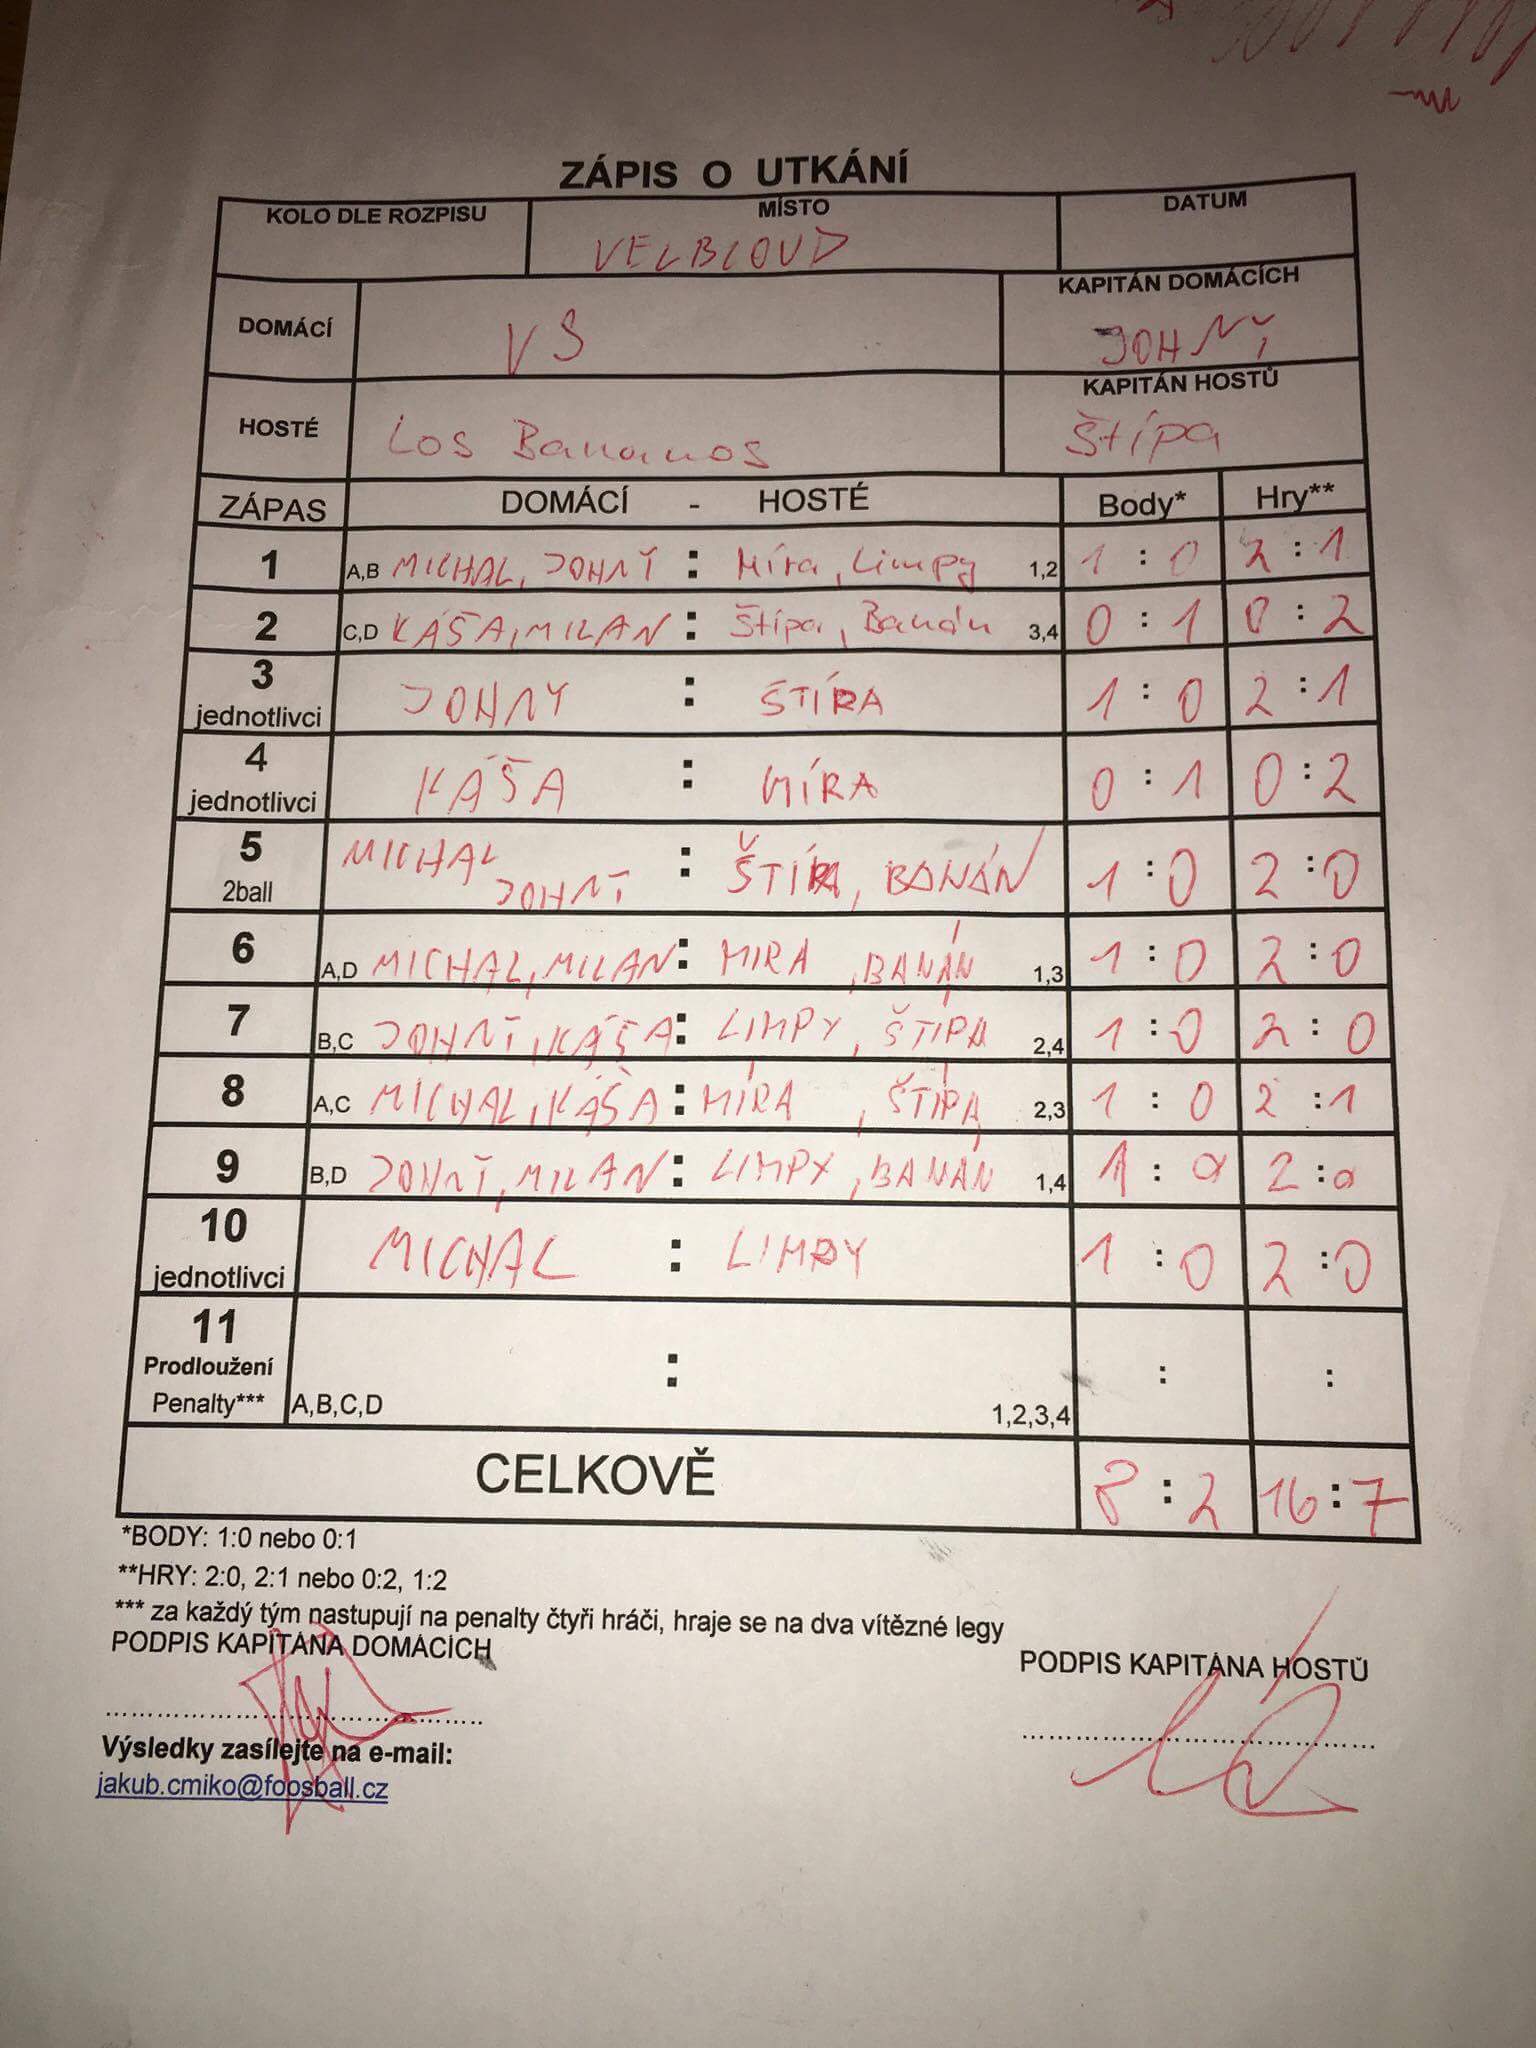 ZÁPIS O UTKÁNÍ
KOLO DLE ROZPISU MÍSTO DATUM
VELBLOUD
DOMÁCÍ VS KAPITÁN DOMÁCÍCH
JOHNY
HOSTÉ Los Bananos KAPITÁN HOSTŮ
Štípa
ZÁPAS DOMÁCÍ - HOSTÉ Body* Hry**
1 A,B MICHAL, JOHNY : Míra, Limpy 1,2 1 : 0 2 : 1
2 C,D KÁŠA, MILAN : Štípa, Banán 3,4 0 : 1 0 : 2
3 jednotlivci JOHNY : ŠTÍPA 1 : 0 2 : 1
4 jednotlivci KÁŠA : MÍRA 0 : 1 0 : 2
5 2ball MICHAL JOHNY : ŠTÍPA, BANÁN 1 : 0 2 : 0
6 A,D MICHAL, MILAN : MIRA, BANÁN 1,3 1 : 0 2 : 0
7 B,C JOHNY, KÁŠA : LIMPY, ŠTÍPA 2,4 1 : 0 2 : 0
8 A,C MICHAL, KÁŠA : MÍRA, ŠTÍPA 2,3 1 : 0 2 : 1
9 B,D JOHNY, MILAN : LIMPY, BANÁN 1,4 1 : 0 2 : 0
10 jednotlivci MICHAL : LIMPY 1 : 0 2 : 0
11 Prodloužení : : :
Penalty*** A,B,C,D 1,2,3,4
CELKOVĚ 8 : 2 16 : 7
*BODY: 1:0 nebo 0:1
**HRY: 2:0, 2:1 nebo 0:2, 1:2
*** za každý tým nastupují na penalty čtyři hráči, hraje se na dva vítězné legy
PODPIS KAPITÁNA DOMÁCÍCH PODPIS KAPITÁNA HOSTŮ
Výsledky zasílejte na e-mail:
jakub.cmiko@foosball.cz